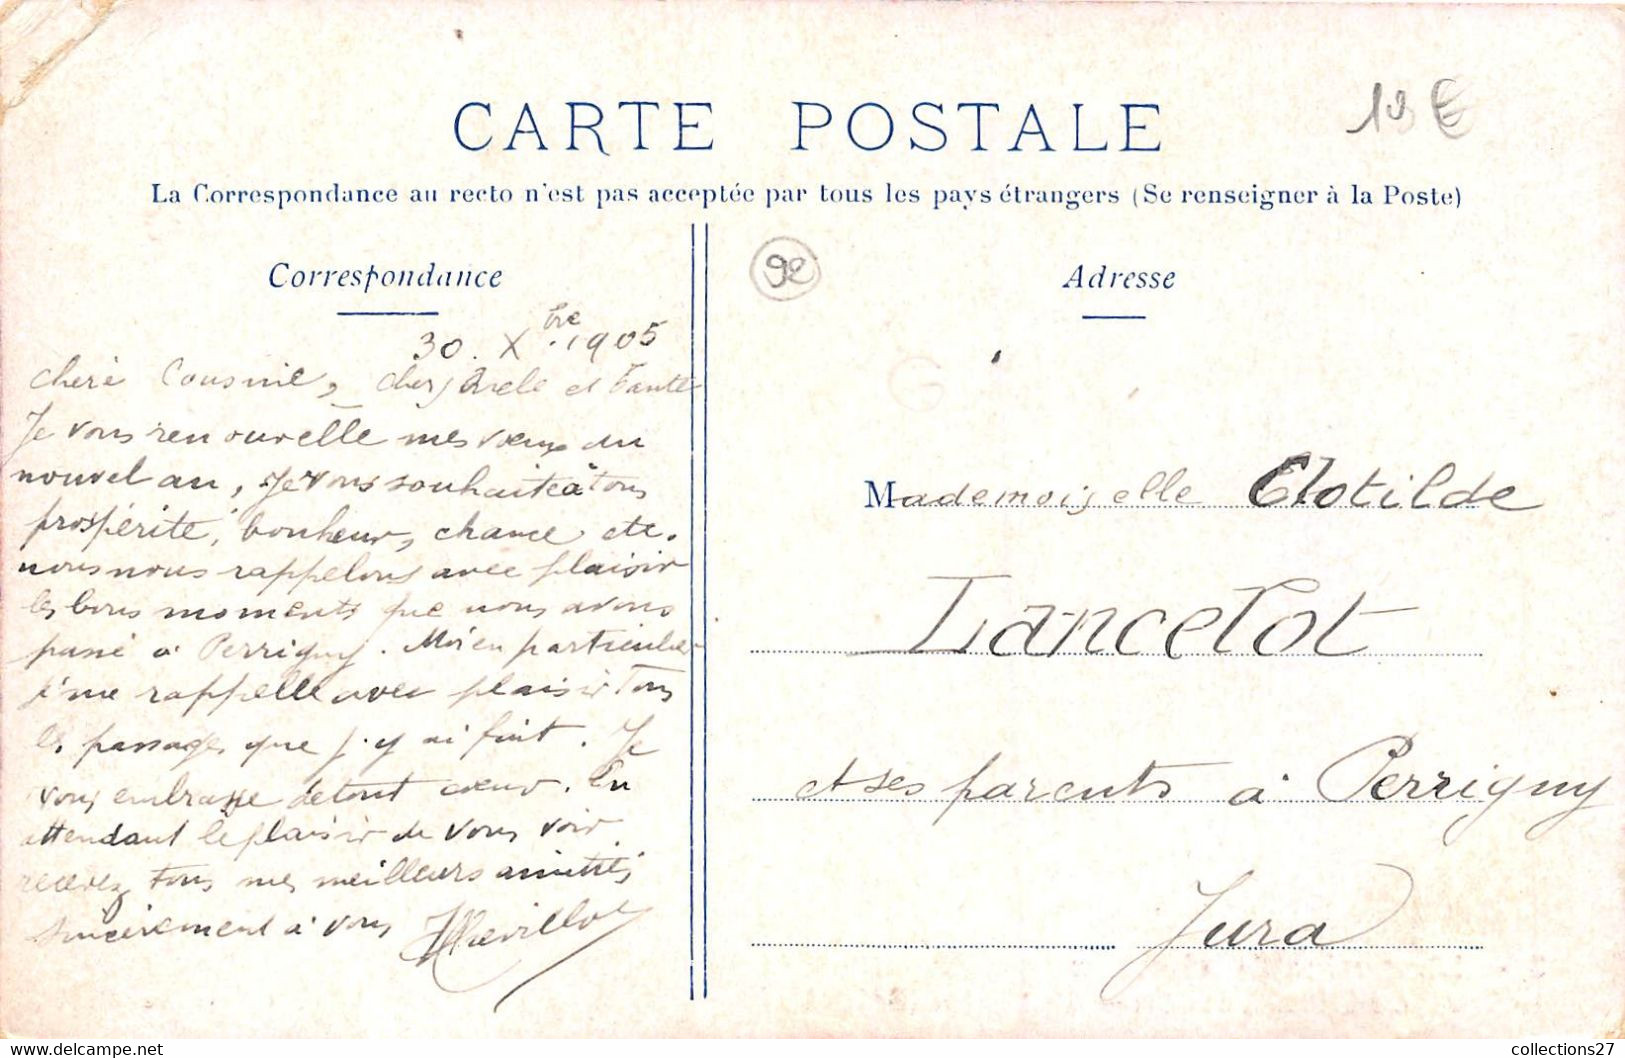 CARTE POSTALE
La Correspondance au recto n'est pas acceptée par tous les pays étrangers (Se renseigner à la Poste)
Correspondance
30. Xbre. 1905
chère Cousine, chers Oncle et Tante
Je vous renouvelle mes vœux du
nouvel an, je vous souhaite à tous
prospérité, bonheur, chance etc.
nous nous rappelons avec plaisir
les bons moments que nous avons
passé à Perrigny. Moi en particulier
j'me rappelle avec plaisir tous
les passages que j'y ai fait. Je
vous embrasse de tout cœur. En
attendant le plaisir de vous voir
recevez tous mes meilleurs amitiés
sincèrement à vous
92
Adresse
Mademoiselle Clotilde
Lancelot
et ses parents à Perrigny
Jura
collections27